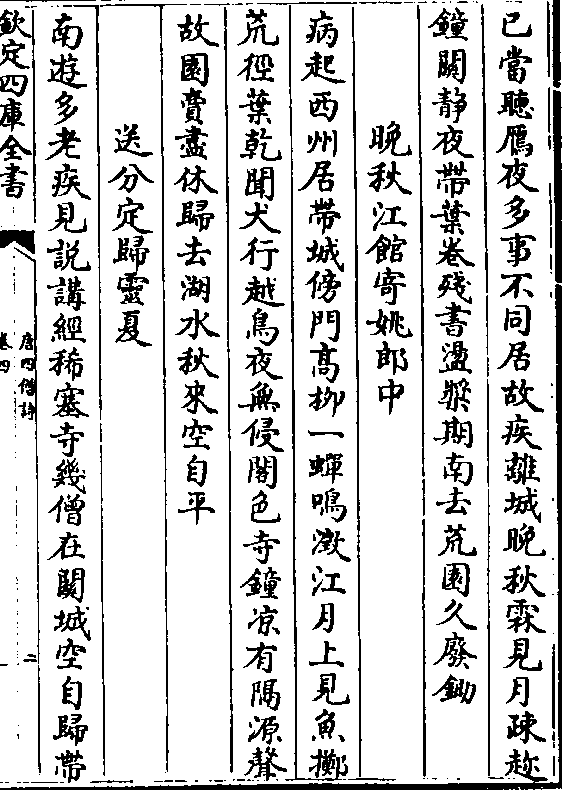 已當聽鴈夜多事不同居故疾離城晩秋霖見月疎趂
鐘闗静夜帶葉卷殘書盪槳期南去荒園久廢鋤
晩秋江館寄姚郎中
病起西州居帶城傍門髙栁一蟬鳴澂江月上見魚擲
荒徑葉乾聞犬行越鳥夜無侵閣色寺鐘凉有隔源聲
故園費盡休歸去湖水秋來空自平
送分定歸靈夏
南遊多老疾見説講經稀塞寺幾僧在闗城空自歸帶
欽定四庫全書
唐四僧詩
卷四
二